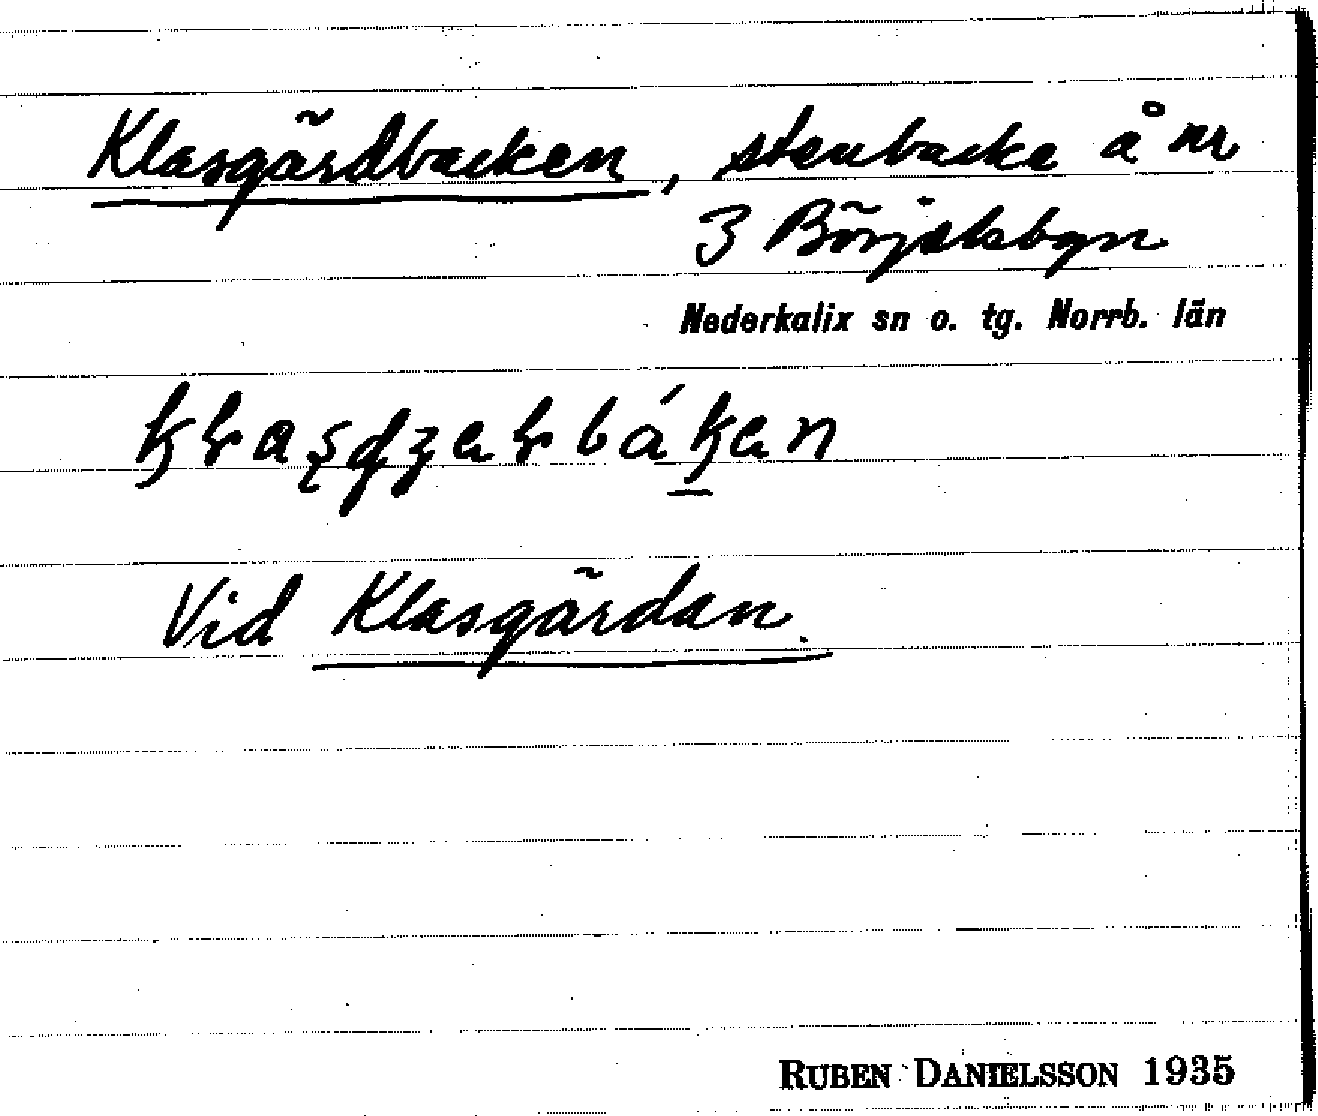 Klasgärdbacken, stenbacke å nr
3 Börjelsbyn
Nederkalix sn o. tg. Norrb. län
Vid Klasgärdan.
RUBEN DANIELSSON 1935